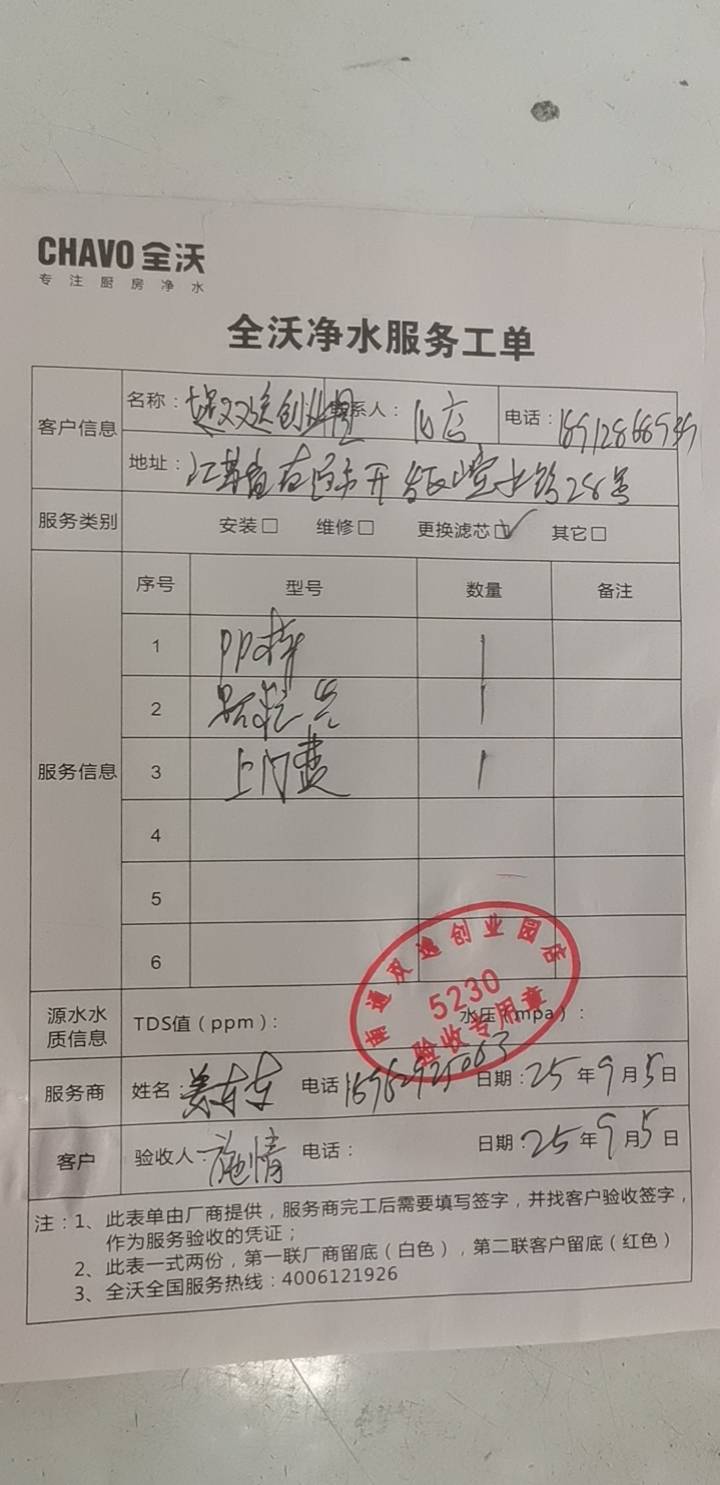 CHAVO 全沃
专注厨房净水
全沃净水服务工单
客户信息
名称： 创业园 联系人： 电话：
地址：江苏省 市开 路28号
服务类别 安装□ 维修□ 更换滤芯□✓ 其它□
服务信息
序号 型号 数量 备注
1 PP棉 1
2 1
3 上门费 1
4
5
6
南通双逸创业园店
5230
验收专用章
源水水质信息 TDS值（ppm）： 水压（mpa）：
服务商 姓名： 电话 日期：25年9月5日
客户 验收人：施情 电话： 日期：25年9月5日
注：1、此表单由厂商提供，服务商完工后需要填写签字，并找客户验收签字，
作为服务验收的凭证；
2、此表一式两份，第一联厂商留底（白色），第二联客户留底（红色）
3、全沃全国服务热线：4006121926